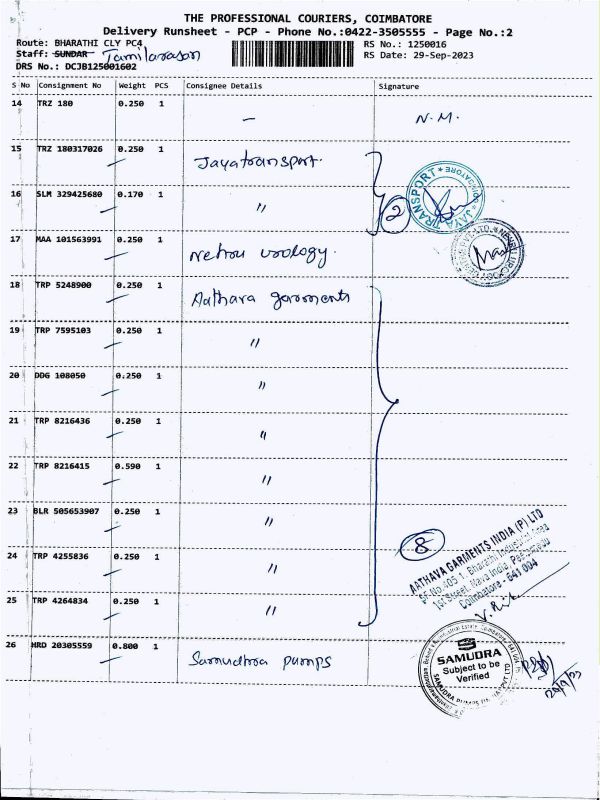 THE PROFESSIONAL COURIERS, COIMBATORE
Delivery Runsheet - PCP - Phone No.:0422-3505555 - Page No.:2
Route: BHARATHI CLY PC4
RS No.: 1250016
Staff: SUNDAR Tamilarasan
RS Date: 29-Sep-2023
DRS No.: DCJB125001602
S No Consignment No Weight PCS Consignee Details Signature
14 TRZ 180 0.250 1 — N.M.
15 TRZ 180317026 0.250 1 Jayatransport.
16 SLM 329425680 0.170 1 〃 2
JAYA TRANSPORT * COIMBATORE *
17 MAA 101563991 0.250 1 Nehru urology.
18 TRP 5248900 0.250 1 Aathava garments
19 TRP 7595103 0.250 1 〃
20 DDG 108050 0.250 1 〃
21 TRP 8216436 0.250 1 〃
22 TRP 8216415 0.590 1 〃
23 BLR 505653907 0.250 1 〃
8
AATHAVA GARMENTS INDIA (P) LTD
SF No.405 1, Bharathi Industrial Area
1st Street, Mava India,
Coimbatore - 641 004
24 TRP 4255836 0.250 1 〃
25 TRP 4264834 0.250 1 〃
26 HRD 20305559 0.800 1 Samudhra pumps
SAMUDRA
Subject to be
Verified